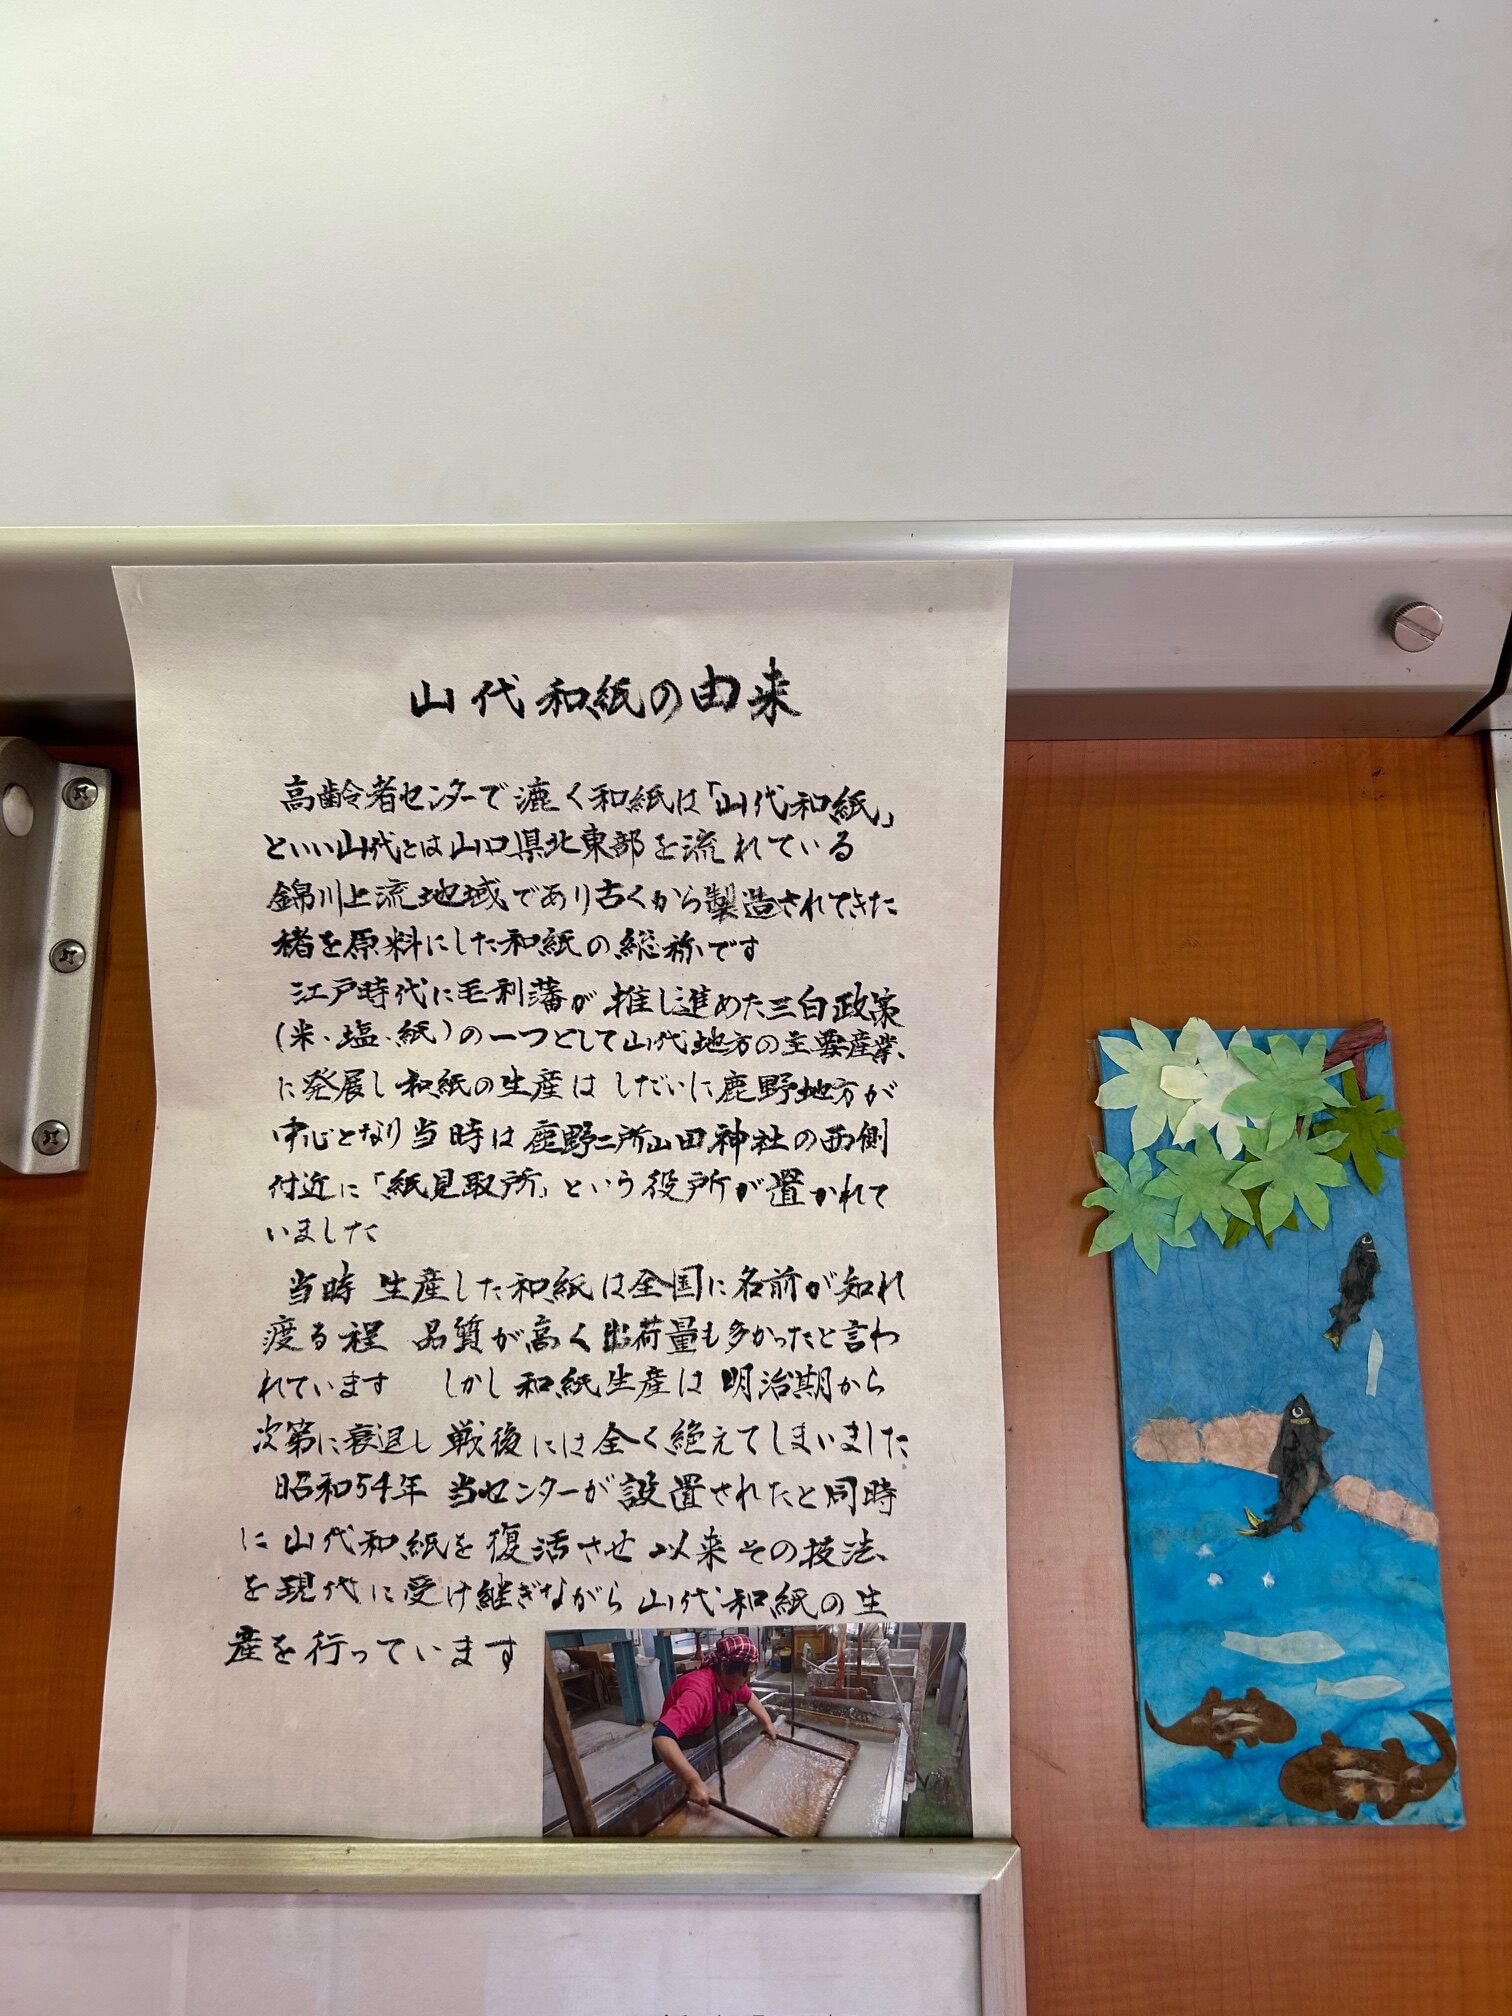 山代和紙の由来
高齢者センターで漉く和紙は「山代和紙」
といい山代とは山口県北東部を流れている
錦川上流地域であり古くから製造されてきた
楮を原料にした和紙の総称です
江戸時代に毛利藩が推し進めた三白政策
(米、塩、紙)の一つとして山代地方の主要産業、
に発展し和紙の生産はしだいに鹿野地方が
中心となり当時は鹿野二所山田神社の西側
付近に「紙見取所」という役所が置かれて
いました
当時 生産した和紙は全国に名前が知れ
渡る程 品質が高く出荷量も多かったと言わ
れています しかし和紙生産は明治期から
次第に衰退し戦後には全く絶えてしまいました
昭和54年 当センターが設置されたと同時
に山代和紙を復活させ以来その技法、
を現代に受け継ぎながら山代和紙の生
産を行っています